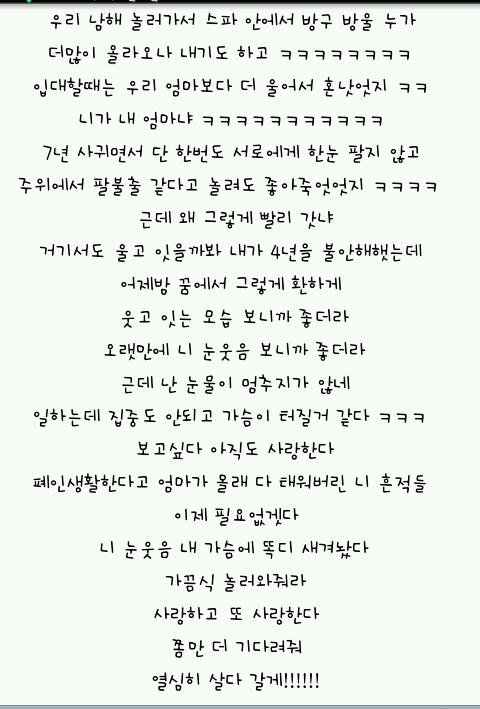 우리 남해 놀러가서 스파 안에서 방구 방울 누가
더많이 올라오나 내기도 하고 ㅋㅋㅋㅋㅋㅋㅋㅋ
입대할때는 우리 엄마보다 더 울어서 혼낫엇지 ㅋㅋ
니가 내 엄마냐 ㅋㅋㅋㅋㅋㅋㅋㅋㅋㅋㅋ
7년 사귀면서 단 한번도 서로에게 한눈 팔지 않고
주위에서 팔불출 같다고 놀려도 좋아죽엇엇지 ㅋㅋㅋㅋ
근데 왜 그렇게 빨리 갓냐
거기서도 울고 잇을까봐 내가 4년을 불안해햇는데
어제밤 꿈에서 그렇게 환하게
웃고 잇는 모습 보니까 좋더라
오랫만에 니 눈웃음 보니까 좋더라
근데 난 눈물이 멈추지가 않네
일하는데 집중도 안되고 가슴이 터질거 같다 ㅋㅋㅋ
보고싶다 아직도 사랑한다
폐인생활한다고 엄마가 올래 다 태워버린 니 흔적들
이제 필요없겟다
니 눈웃음 내 가슴에 똑디 새겨놨다
가끔식 놀러와줘라
사랑하고 또 사랑한다
쫌만 더 기다려줘
열심히 살다 갈게!!!!!!